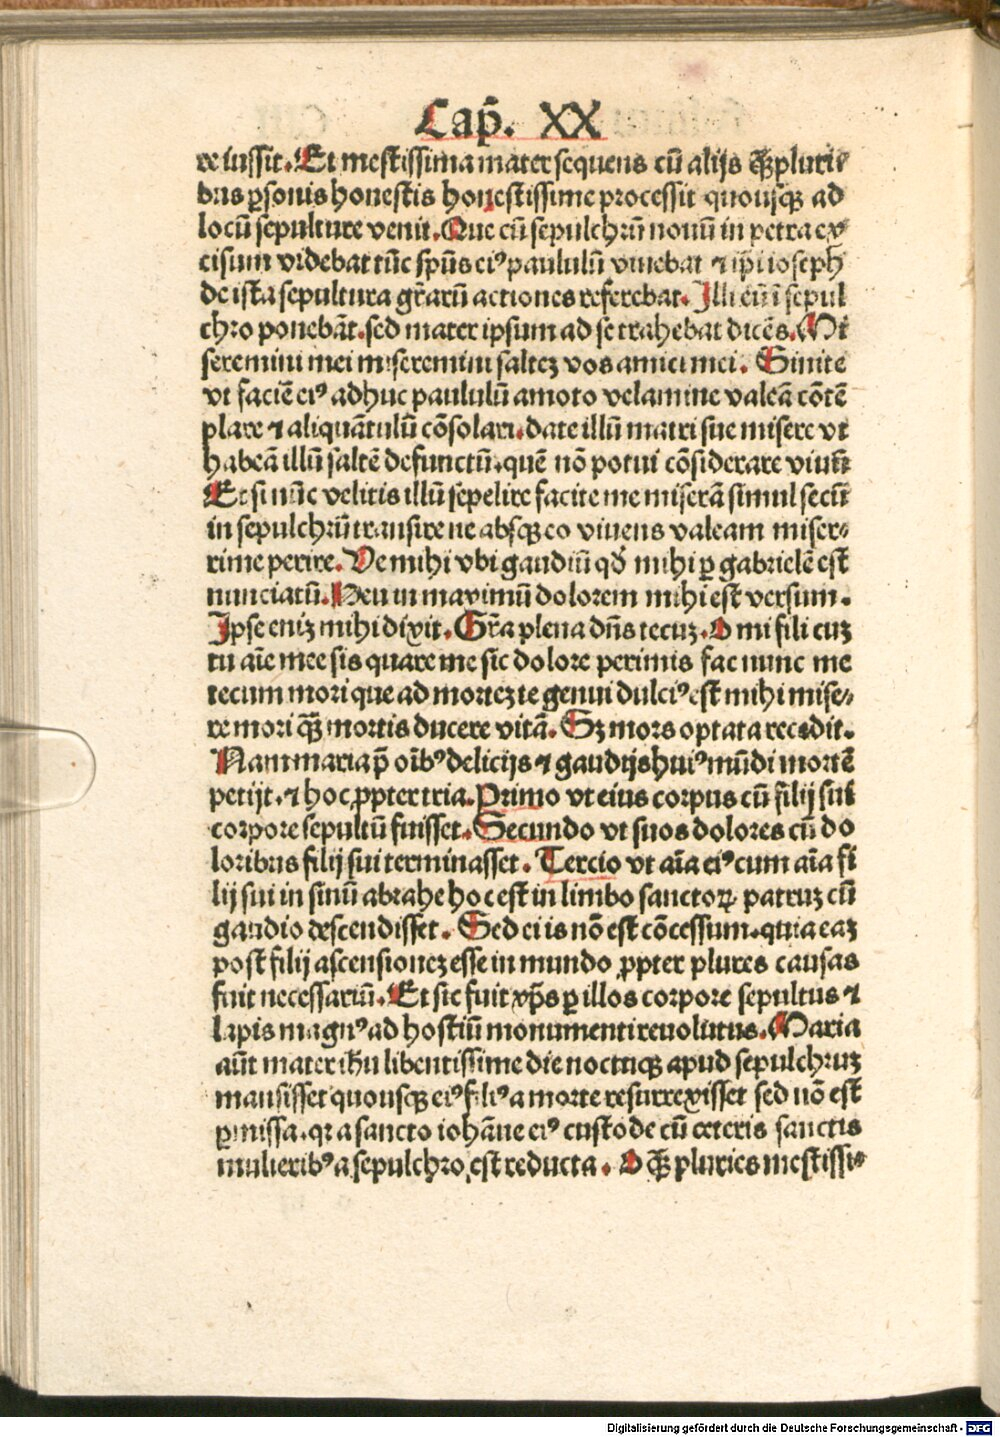 Cap̄. XX
re iussit. Et mestissima mater sequens cū alijs qꝫ̄ pluri⸗
bus ꝑsonis honestis honestissime processit quousqꝫ ad
locū sepulture venit. Que cū sepulchrū nouū in petra ex⸗
cisum videbat tūc spūs eiꝰ paululū viuebat ⁊ ip̄i ioseph
de ista sepultura gr̄arū actiones referebat. Illi eū ī sepul
chro ponebāt. sed mater ipsum ad se trahebat dicēs. Mi
seremini mei miseremini saltez vos amici mei. Sinite
vt faciē eiꝰ adhuc paululū amoto velamine valeā cōtē
plare ⁊ aliquātulū cōsolari. date illū matri sue misere vt
habeā illū saltē defunctū. quē nō potui cōsiderare viuū
Et si nūc velitis illū sepelire facite me miserā simul secū
in sepulchrū transire ne absqꝫ eo viuens valeam miser⸗
rime perire. Ve mihi vbi gaudiū qd̄ mihi ꝑ gabrielē est
nunciatū. Heu in maximū dolorem mihi est versum.
Ipse eniz mihi dixit. Gr̄a plena dn̄s tecuz. O mi fili cuz
tu aīe mee sis quare me sic dolore perimis fac nunc me
tecum mori que ad mortez te genui dulciꝰ est mihi mise⸗
re mori qꝫ̄ mortis ducere vitā. Sz mors optata recedit.
Nam maria p̄ oībꝰ delicijs ⁊ gaudijs huiꝰ mūdi mortē
petijt. ⁊ hoc ꝓpter tria. Primo vt eius corpus cū filij sui
corpore sepultū fuisset. Secundo vt suos dolores cū do
loribus filij sui terminasset. Tercio vt aīa eiꝰ cum aīa fi
lij sui in sinū abrahe hoc est in limbo sanctoꝝ patruz cū
gaudio descendisset. Sed ei is nō est cōcessum. quia eaz
post filij ascensionez esse in mundo ꝓpter plures causas
fuit necessariū. Et sic fuit xp̄s ꝑ illos corpore sepultus ⁊
lapis magnꝰ ad hostiū monumenti reuolutus. Maria
aūt mater ihū libentissime die noctuqꝫ apud sepulchruz
mansisset quousqꝫ eiꝰ filiꝰ a morte resurrexisset sed nō est
ꝑmissa. qr a sancto iohāne eiꝰ custode cū ceteris sanctis
mulieribꝰ a sepulchro est reducta. O qꝫ̄ pluries mestissi⸗
Digitalisierung gefördert durch die Deutsche Forschungsgemeinschaft - DFG